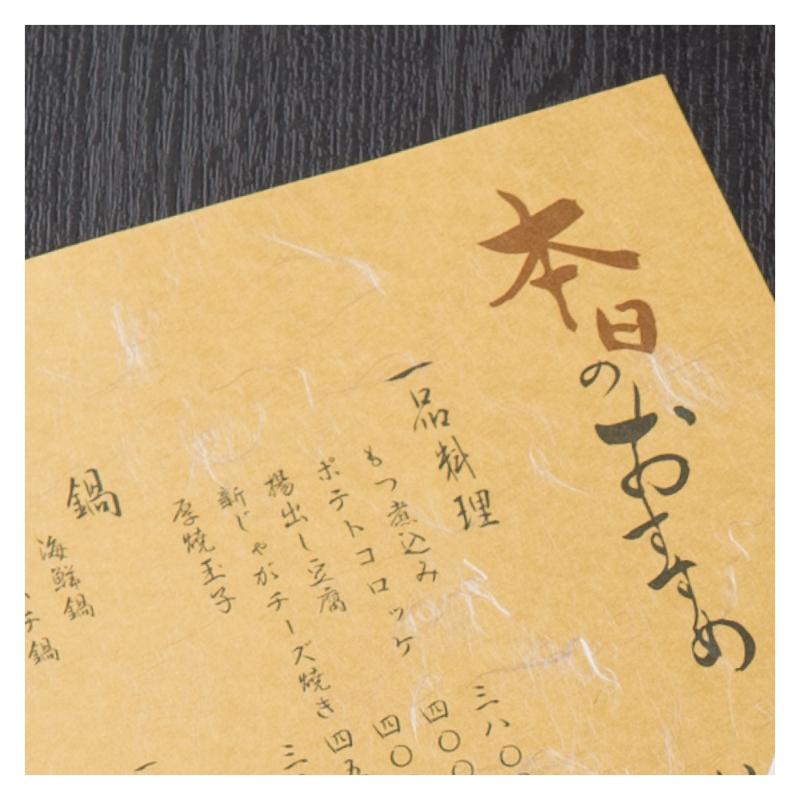 本日のおすすめ
一品料理
もつ煮込み 三八〇
ポテトコロッケ 四〇〇
揚出し豆腐 四〇
新じゃがチーズ焼き 四五
厚焼玉子 三
鍋
海鮮鍋
チ鍋